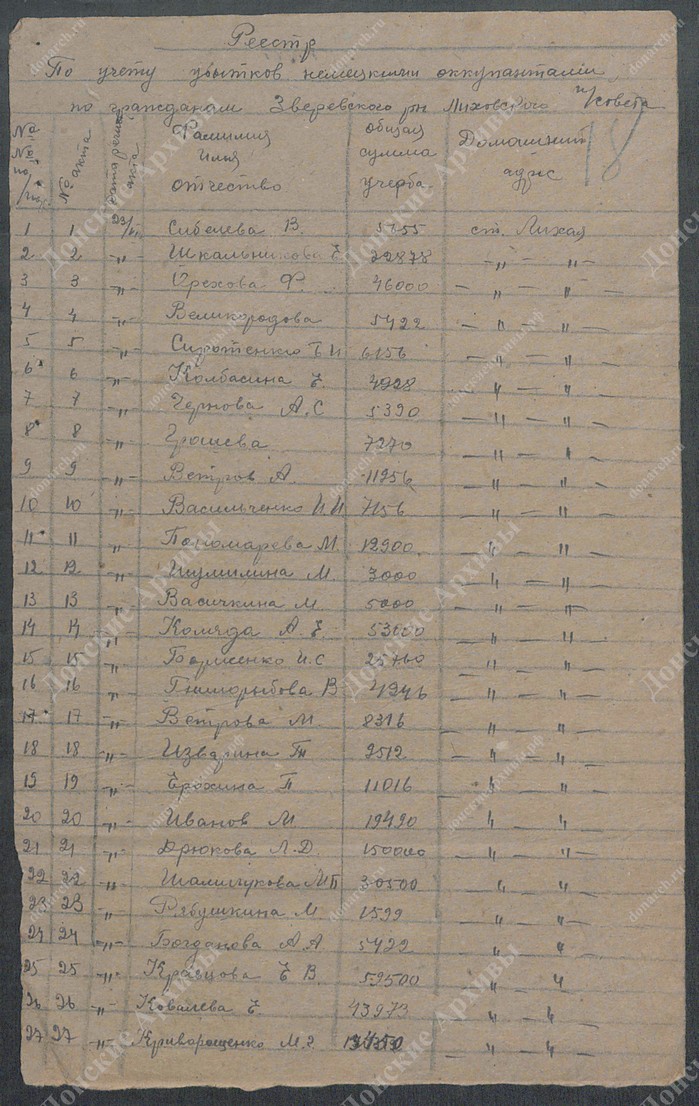 Реестр
По учету убытков немецкими оккупантами
по гражданам Зверевского рн Лиховского п/совета
18
№№ по/пор. № акта Дата речи акта Фамилия имя отчество общая сумма учерба Домашний адрес
1 1 23/ Сибелева В. 5155 ст. Лихая
2 2 -"- Шкальникова Е 22878 -"- "-
3 3 -"- Орехова Ф. 46000 - " - " -
4 4 -"- Великородова 5422 - " - " -
5 5 -"- Сиротенко Т И 6156 - " - " -
6 6 -"- Колбасина Е. 4928 - " - " -
7 7 -"- Чернова А.С 5390 - " - " -
8 8 -"- Грошева 7270 - " - " -
9 9 -"- Ветров А. 11956 - " - " -
10 10 -"- Васильченко И И 7156 - " - " -
11 11 " Пономарева М. 12900 - " - " -
12 12 -"- Шумилина М. 3000 - " - " -
13 13 -"- Васичкина М. 5000 - " - " -
14 14 " Коляда А. Е. 53000 - " - " -
15 15 -"- Борисенко И.С 25760 - " - " -
16 16 -"- В 4946 - " - " -
17 17 -"- Ветрова М. 2316 - " - " -
18 18 -"- 2512 - " - " -
19 19 -"- Ерохина П 11016 - " - " -
20 20 -"- Иванов М. 19490 " - "
21 21 -"- Дрюкова Л.Д 150000 - " - "
22 22 -"- МП 30500 - " - "
23 23 -"- Рябушкина М 1599 - " - "
24 24 -"- Богданова А А 5422 - " - "
25 25 -"- Кравцова Е В. 59500 - " - "
26 26 -"- Ковалева Е 43973 - " - "
27 27 -"- Криворощенко М.г - " - "
Донские Архивы
donarch.ru
донскиеархивы.рф